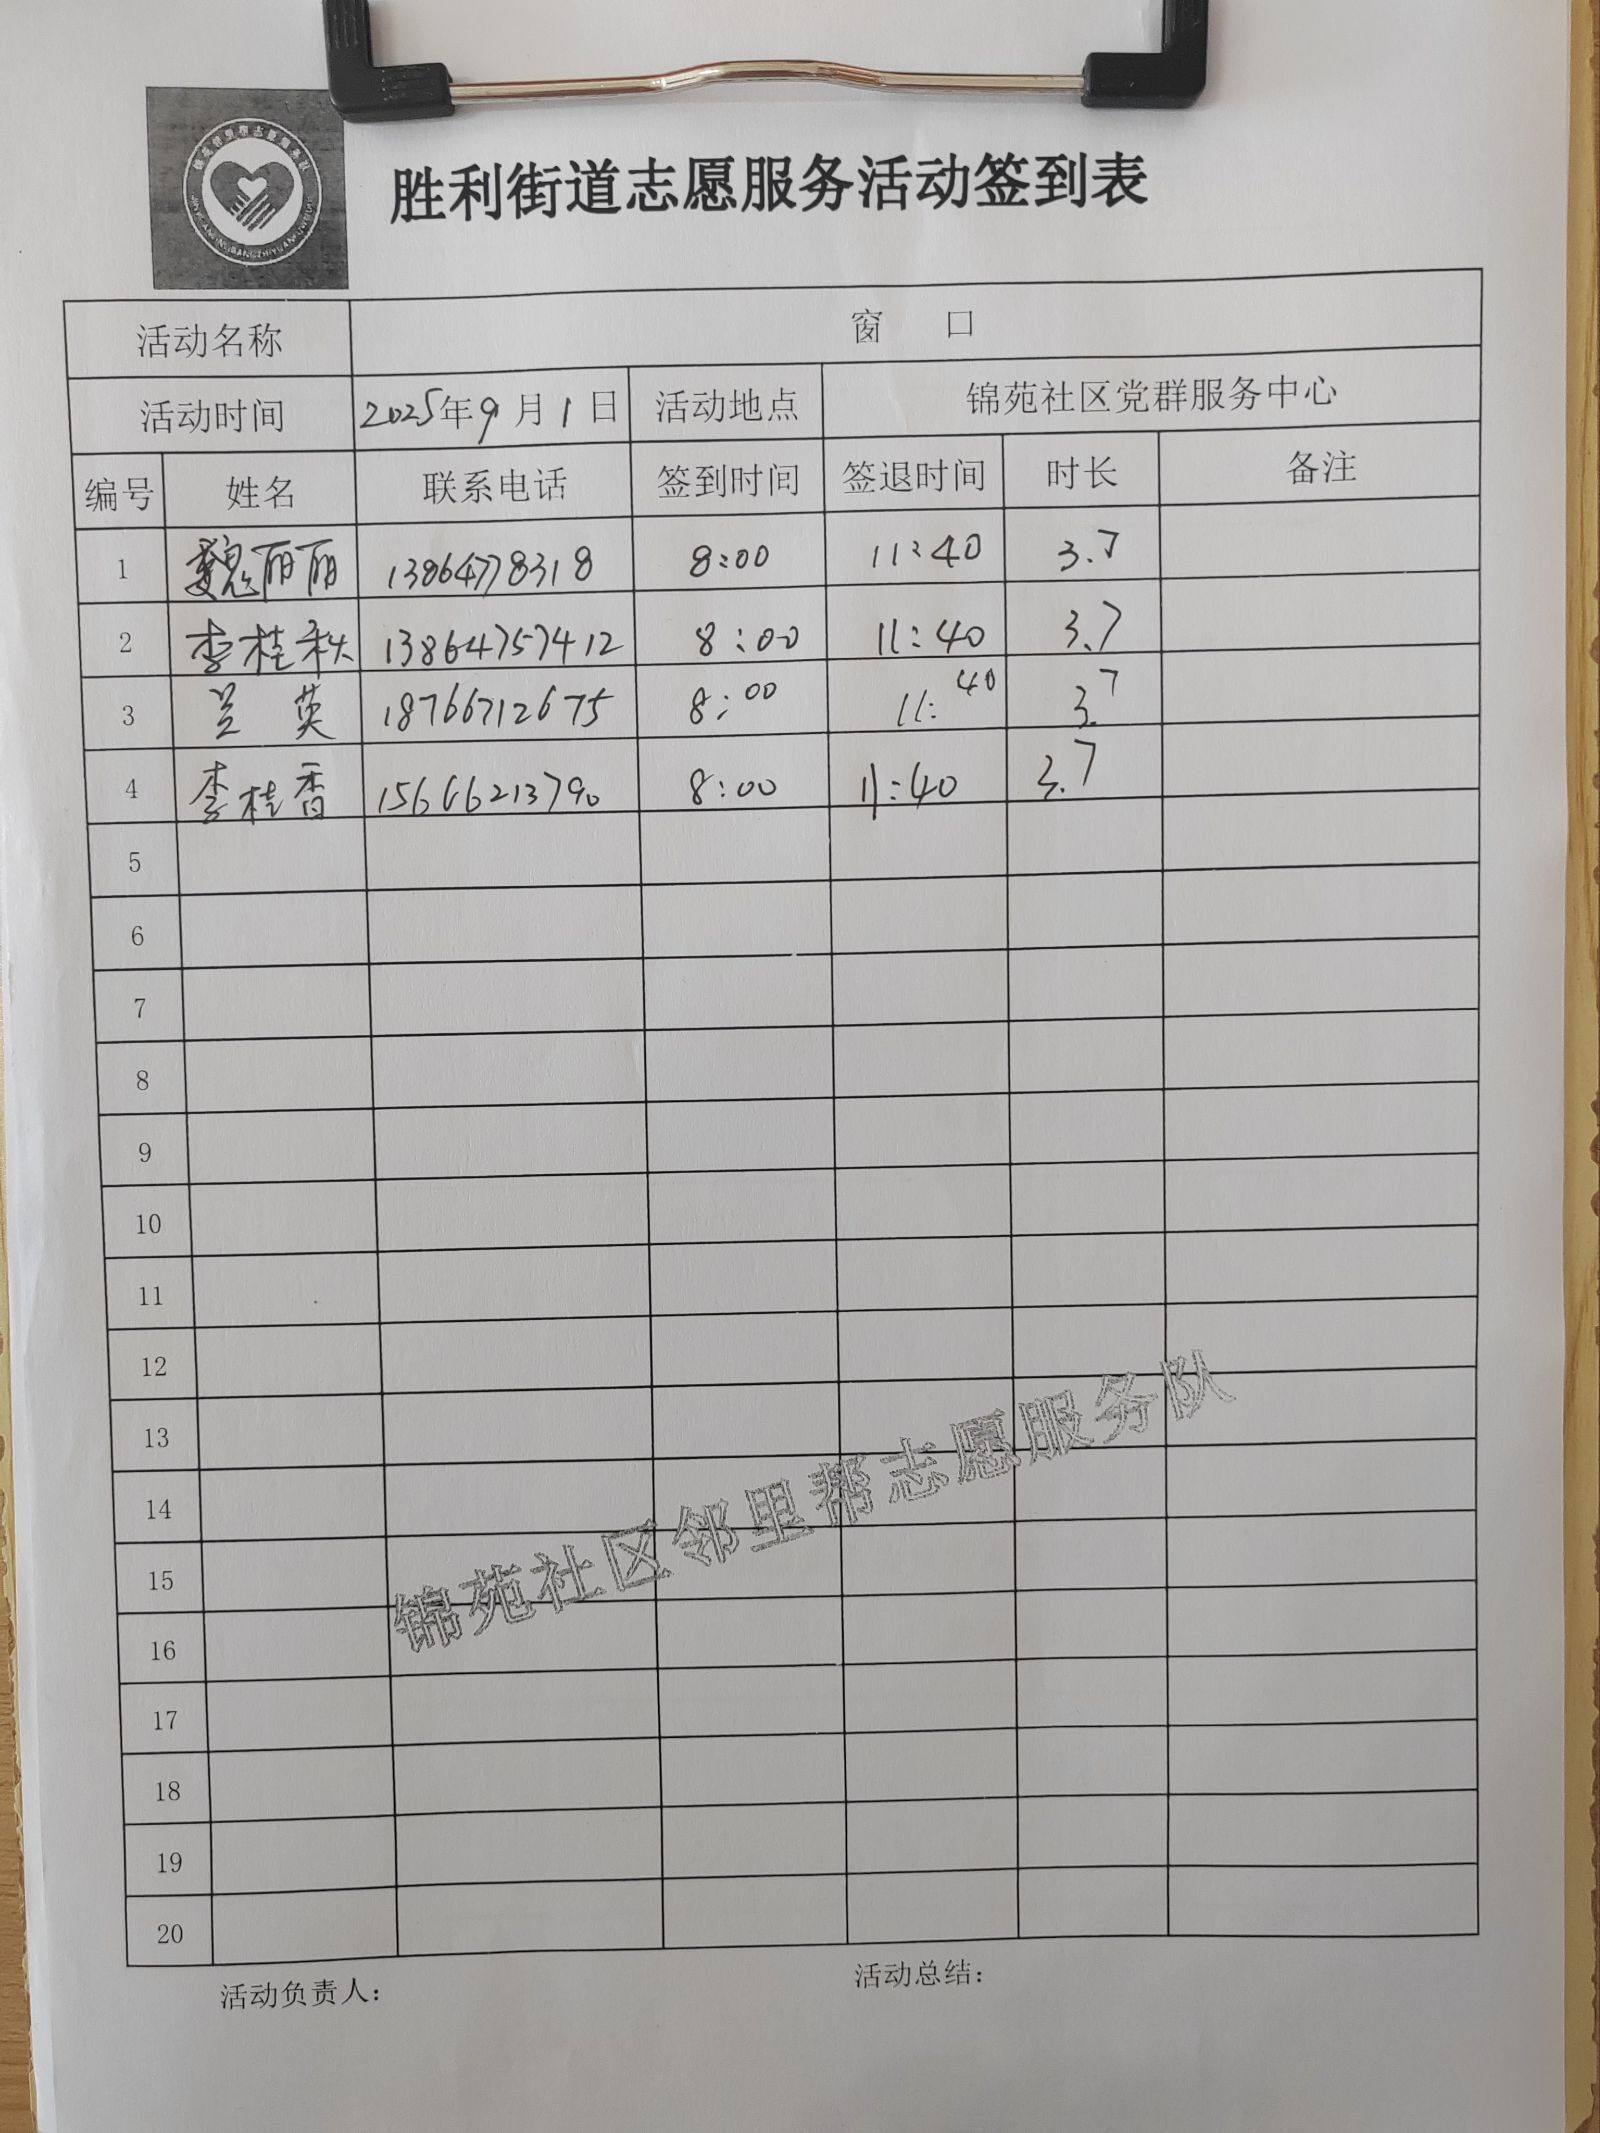 胜利街道志愿服务活动签到表
活动名称 窗 口
活动时间 2025年9月1日 活动地点 锦苑社区党群服务中心
编号 姓名 联系电话 签到时间 签退时间 时长 备注
1 魏丽丽 13864778318 8:00 11:40 3.7
2 李桂秋 13864757412 8:00 11:40 3.7
3 兰英 18766712675 8:00 11:40 3.7
4 李桂香 15666213790 8:00 11:40 3.7
5
6
7
8
9
10
11
12
13
14
15
16
17
18
19
20
锦苑社区邻里帮志愿服务队
活动负责人: 活动总结: